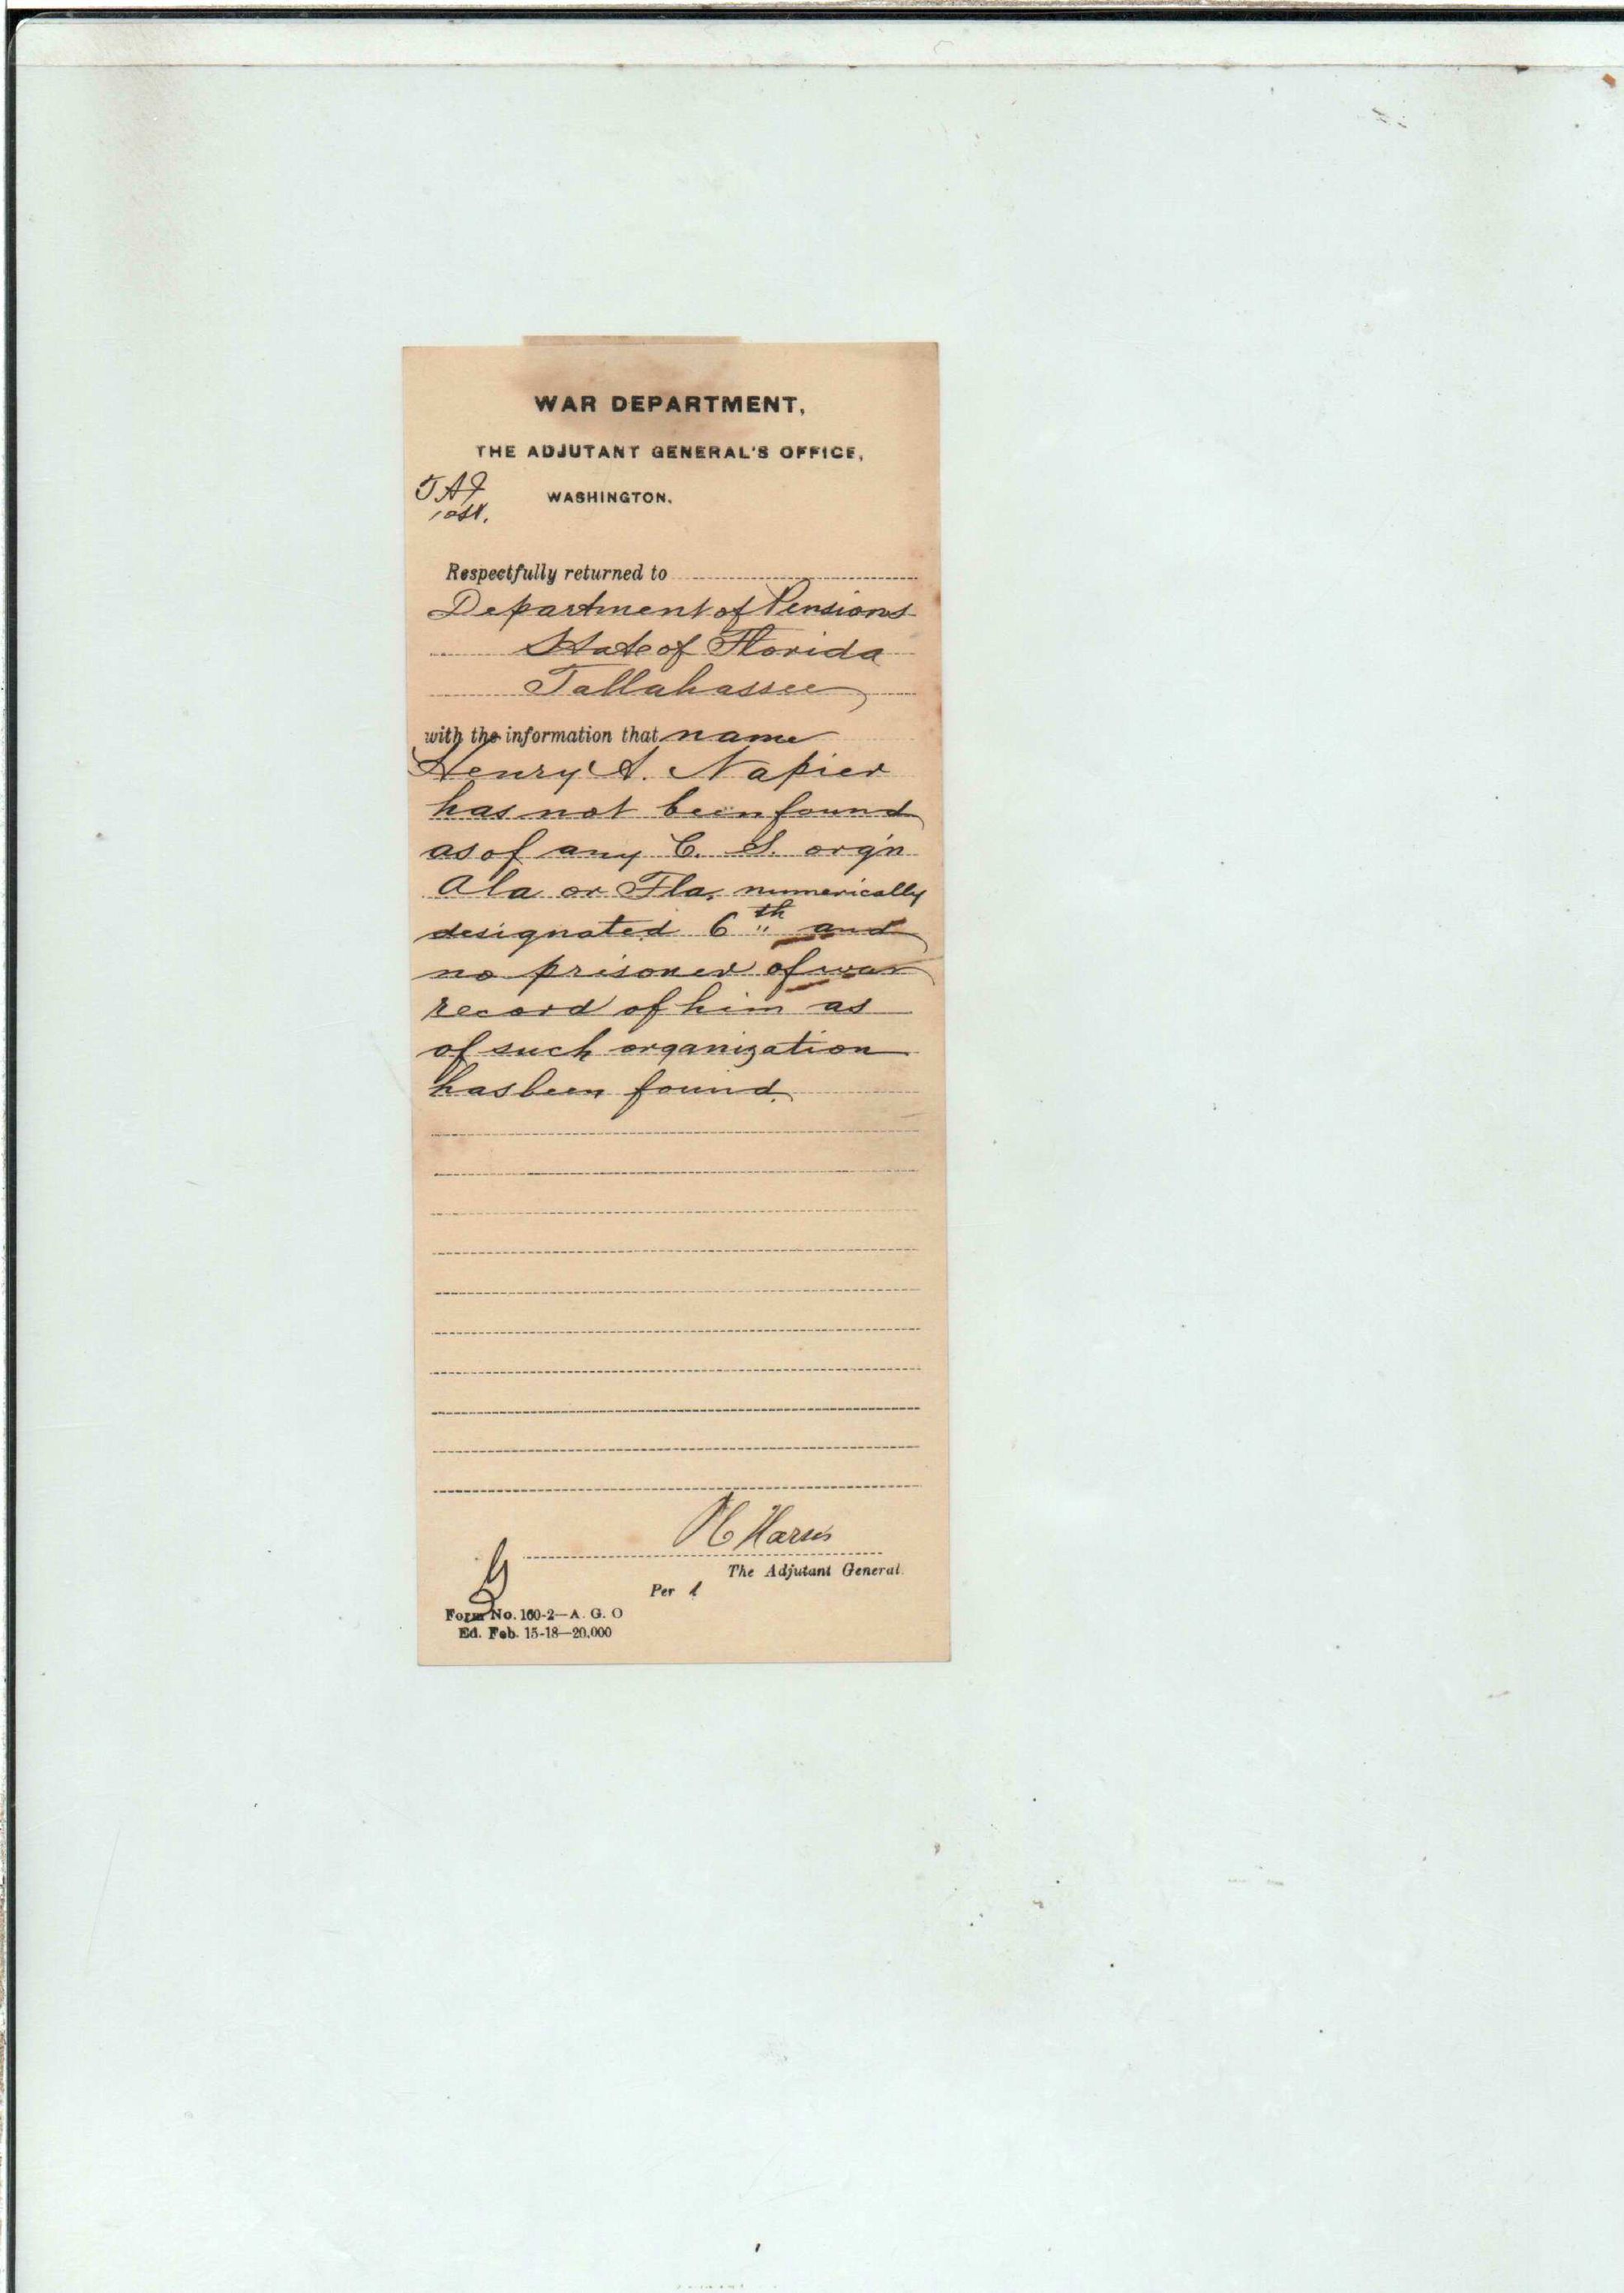 WAR DEPARTMENT,
THE ADJUTANT GENERAL'S OFFICE,
WASHINGTON.
Respectfully returned to
Department of Pensions
State of Florida
Tallahassee
with the information that name
Henry A. Napier
has not been found
as of any C. S. org'n
Ala or Fla, numerically
designated 6th and
no prisoner of war
record of him as
of such organization
has been found.
Harris
The Adjutant General.
Per
Form No. 160-2—A. G. O
Ed. Feb. 15-18—20,000